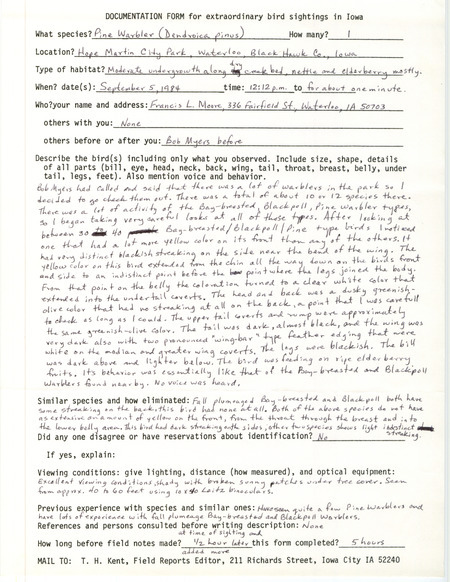 DOCUMENTATION FORM for extraordinary bird sightings in Iowa
What species? Pine Warbler (Dendroica pinus) How many? 1
Location? Hope Martin City Park, Waterloo, Black Hawk Co., Iowa
Type of habitat? Moderate undergrowth along dry creek bed, nettle and elderberry mostly.
When? date(s): September 5, 1984 time: 12:12 p.m. to for about one minute.
Who? your name and address: Francis L. Moore, 336 Fairfield St., Waterloo, IA 50703
others with you: None
others before or after you: Bob Myers before
Describe the bird(s) including only what you observed. Include size, shape, details
of all parts (bill, eye, head, neck, back, wing, tail, throat, breast, belly, under
tail, legs, feet). Also mention voice and behavior.
Bob Myers had called and said that there was a lot of warblers in the park so I
decided to go check them out. There was a total of about 10 or 12 species there.
There was a lot of activity of the Bay-breasted, Blackpoll, Pine Warbler types,
so I began taking very careful looks at all of those types. After looking at
between 30 40 Bay-breasted/Blackpoll/Pine type birds I noticed
one that had a lot more yellow color on its front than any of the others. It
has very distinct blackish streaking on the side near the bend of the wing. The
yellow color on this bird extended from the chin all the way down on the birds front
and side to an indistinct point before the point where the legs joined the body.
From that point on the belly the coloration turned to a clear white color that
extended into the undertail coverts. The head and back was a dusky greenish-
olive color that had no streaking at all on the back, a point that I was careful
to check as long as I could. The upper tail coverts and rump were approximately
the same greenish-olive color. The tail was dark, almost black, and the wing was
very dark also with two pronounced "wing-bar" type feather edging that were
white on the median and greater wing coverts. The legs were blackish. The bill
was dark above and lighter below. The bird was feeding on ripe elderberry
fruits. Its behavior was essentially like that of the Bay-breasted and Blackpoll
Warblers found nearby. No voice was heard.
Similar species and how eliminated: Fall plumaged Bay-breasted and Blackpoll both have
some streaking on the back, this bird had none at all. Both of the above species do not have
as extensive an amount of yellow on the front, from the throat through the breast and into
the lower belly area. This bird had dark streaking on the sides, other two species shows light indistinct
streaking.
Did any one disagree or have reservations about identification? No
If yes, explain:
Viewing conditions: give lighting, distance (how measured), and optical equipment:
Excellent viewing conditions, shady with broken sunny patches under tree cover. Seen
from approx. 40 to 60 feet using 10x40 Leitz binoculars.
Previous experience with species and similar ones: Have seen quite a few Pine Warblers and
have lots of experience with fall plumage Bay-breasted and Blackpoll Warblers.
References and persons consulted before writing description: None
at time of sighting and
How long before field notes made? 1/2 hour later this form completed? 5 hours
added more
MAIL TO: T. H. Kent, Field Reports Editor, 211 Richards Street, Iowa City IA 52240